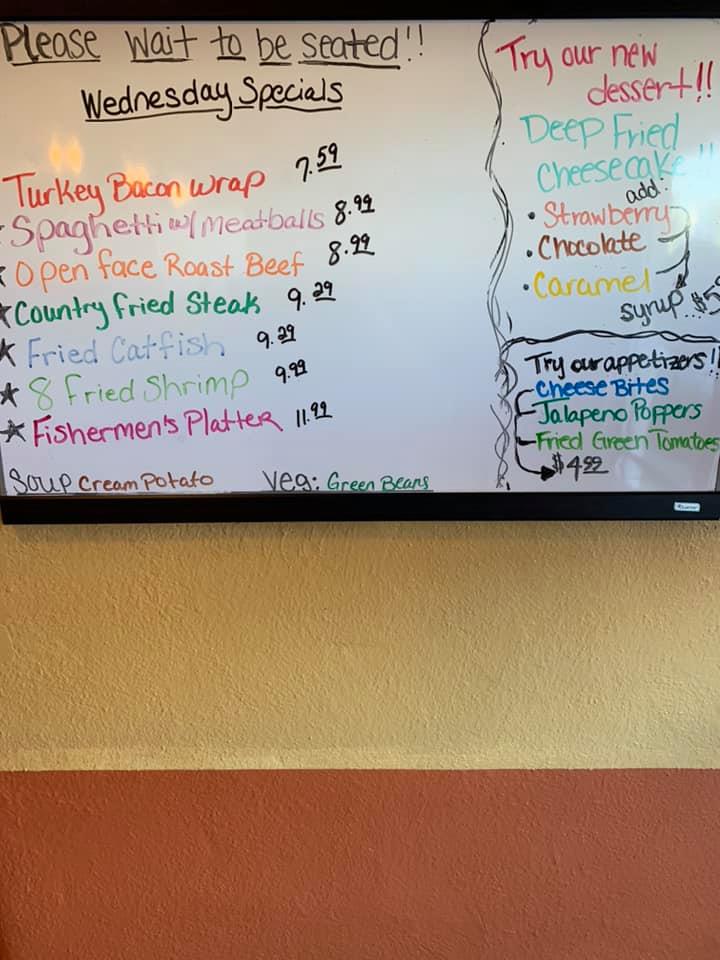 Please wait to be seated!!
Wednesday Specials
Turkey Bacon wrap 7.59
Spaghetti w/ Meatballs 8.99
Open face Roast Beef 8.99
Country fried Steak 9.29
Fried Catfish 9.29
8 Fried Shrimp 9.99
Fishermen's Platter 11.99
Soup Cream Potato Veg: Green Beans
Try our new
dessert!!
Deep Fried
Cheesecake!!
add:
• Strawberry
• Chocolate
• Caramel
syrup..
Try our appetizers!!
Cheese Bites
Jalapeno Poppers
Fried Green Tomatoes
$4.99